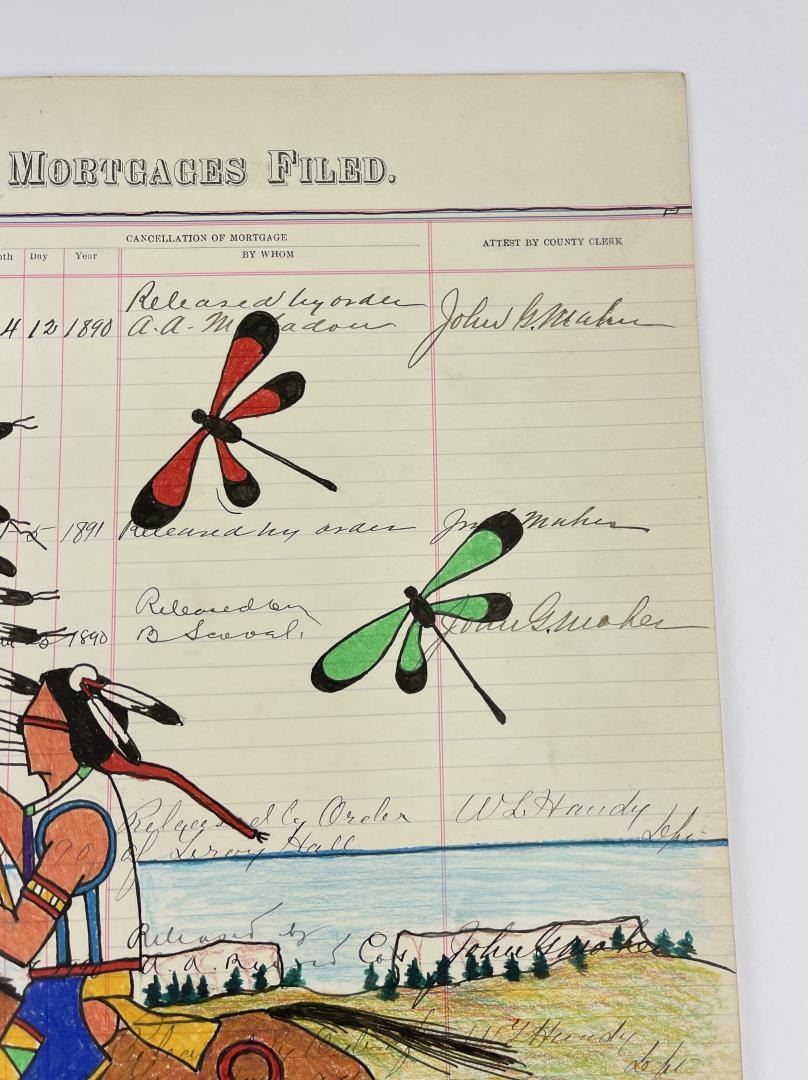 MORTGAGES FILED.
CANCELLATION OF MORTGAGE
BY WHOM
ATTEST BY COUNTY CLERK
Day Year
Released by order
4 12 1890 A. A. John G. Maher
1891 Released by order Maher
Released by
1890 B Scoval. John G. Maher
Released by Order W L Handy
of Leroy Hall Dept
Released by
A. A. Cos John G Maher
Handy
Dept